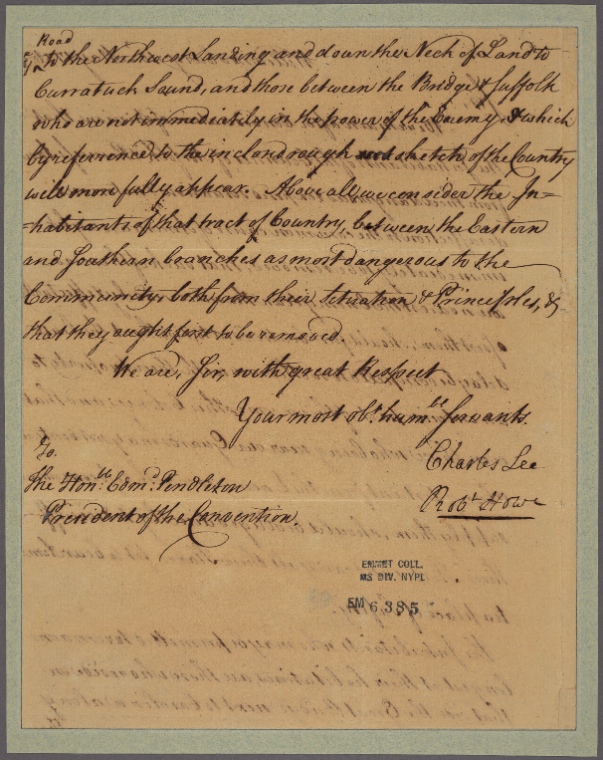 Road
to the Northwest Landing and down the Neck of Land to
Curratuck Sound, and those between the Bridge & Suffolk
who are not immediately in the power of the Enemy & which
by referrence to the inclosd rough sketch of the Country
will more fully appear. Above all, we consider the In=
=habitants of that tract of Country, between the Eastern
and Southern branches as most dangerous to the
Community, both from their Situation & Principles, &
that they ought first to be removed.
We are, Sir, with great Respect
Your most obt. humble. servants.
Charles Lee
Robt Howe
To
The Honble Edmd. Pendleton
President of the Convention.
EMMET COLL.
MS DIV. NYPL
EM 6385